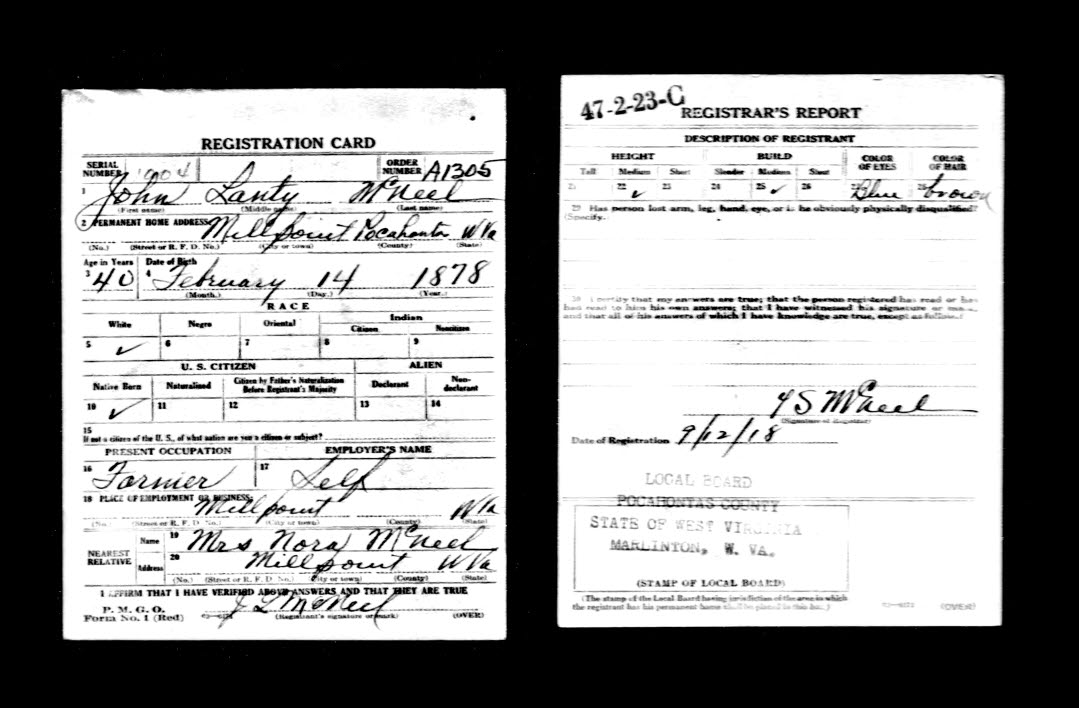 REGISTRATION CARD
SERIAL NUMBER 1904 ORDER NUMBER A1305
1 John Lanty McNeel
(First name) (Middle name) (Last name)
2 PERMANENT HOME ADDRESS Millpoint Pocahontas W Va
(No.) (Street or R. F. D. No.) (City or town) (County) (State)
Age in Years Date of Birth
3 40 4 February 14 1878
(Month.) (Day.) (Year.)
RACE
White Negro Oriental Indian
Citizen Noncitizen
5 ✓ 6 7 8 9
U. S. CITIZEN ALIEN
Native Born Naturalized Citizen by Father's Naturalization Before Registrant's Majority Declarant Non-declarant
10 ✓ 11 12 13 14
15
If not a citizen of the U. S., of what nation are you a citizen or subject?
PRESENT OCCUPATION EMPLOYER'S NAME
16 Farmer 17 Self
18 PLACE OF EMPLOYMENT OR BUSINESS:
Millpoint W Va
(No.) (Street or R. F. D. No.) (City or town) (County) (State)
NEAREST RELATIVE
Name 19 Mrs Nora McNeel
Address 20 Millpoint W Va
(No.) (Street or R. F. D. No.) (City or town) (County) (State)
I AFFIRM THAT I HAVE VERIFIED ABOVE ANSWERS AND THAT THEY ARE TRUE
P. M. G. O.
Form No. 1 (Red) J L McNeel
(Registrant's signature or mark) (OVER)
47-2-23-C
REGISTRAR'S REPORT
DESCRIPTION OF REGISTRANT
HEIGHT BUILD COLOR OF EYES COLOR OF HAIR
Tall Medium Short Slender Medium Stout
21 22 ✓ 23 24 25 ✓ 26 27 Blue 28 brown
29 Has person lost arm, leg, hand, eye, or is he obviously physically disqualified?
(Specify.)
30 I certify that my answers are true; that the person registered has read or has
had read to him his own answers; that I have witnessed his signature or
and that all of his answers of which I have knowledge are true, except as follows:
S McNeel
(Signature of Registrar)
Date of Registration 9/12/18
LOCAL BOARD
POCAHONTAS COUNTY
STATE OF WEST VIRGINIA
MARLINTON, W. VA.
(STAMP OF LOCAL BOARD)
(The stamp of the Local Board having jurisdiction of the area in which
the registrant has his permanent home shall be placed in this box.)
(OVER)